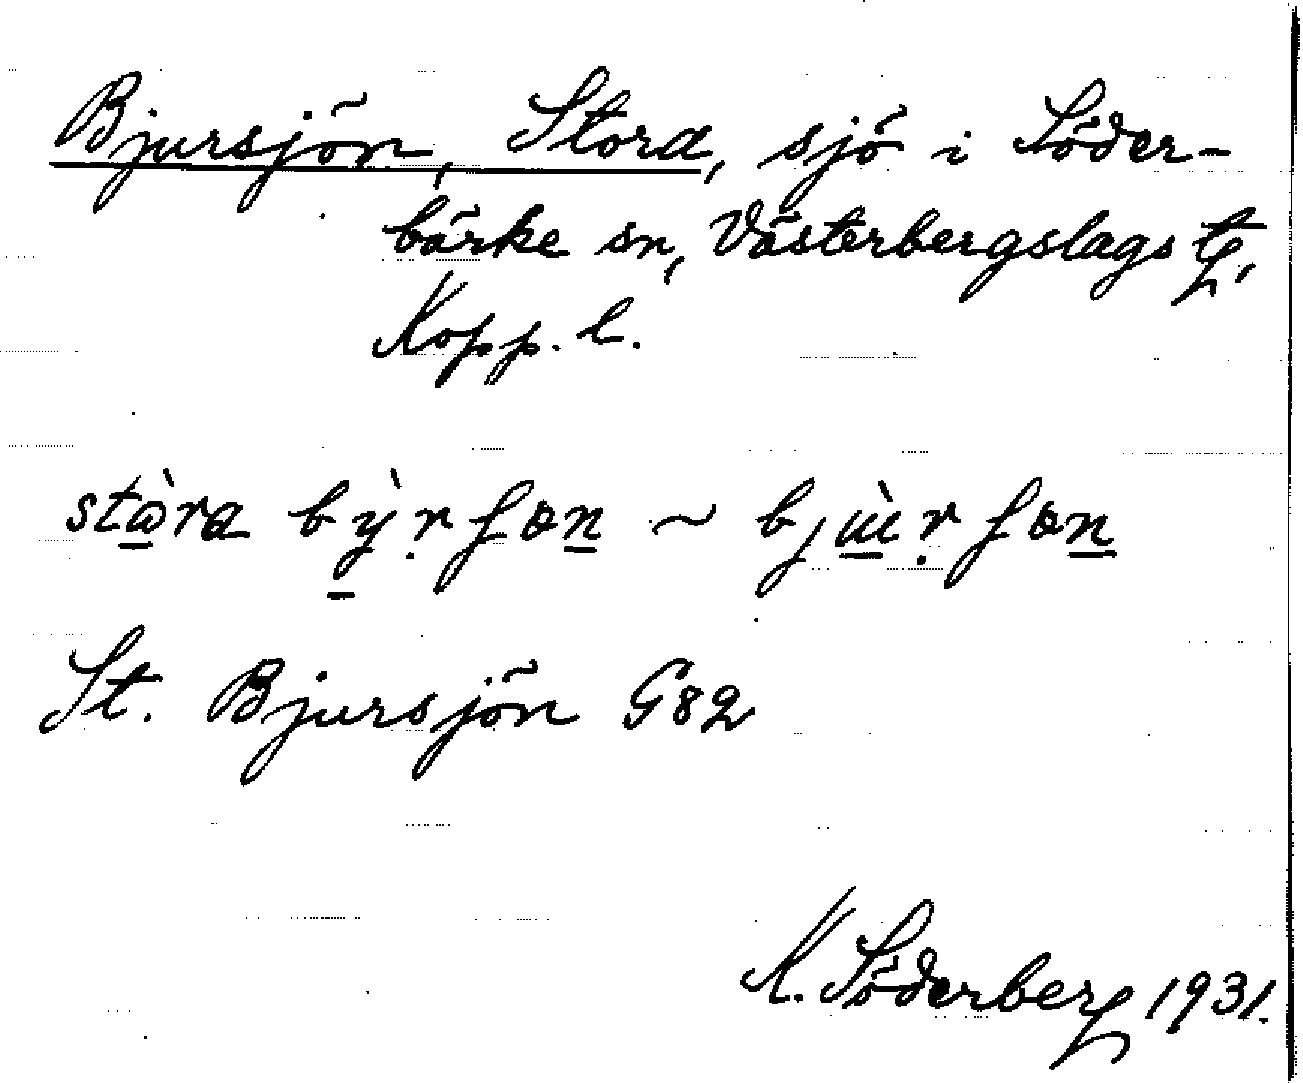 Bjursjön, Stora, sjö i Söder-
bärke sn, Västerbergslags tg,
Kopp. l.
stɷ̀ra bỳ̱ṛʃɵn ~ bjɯ̱̀ṛʃɵn
St. Bjursjön G82
K. Söderberg 1931.